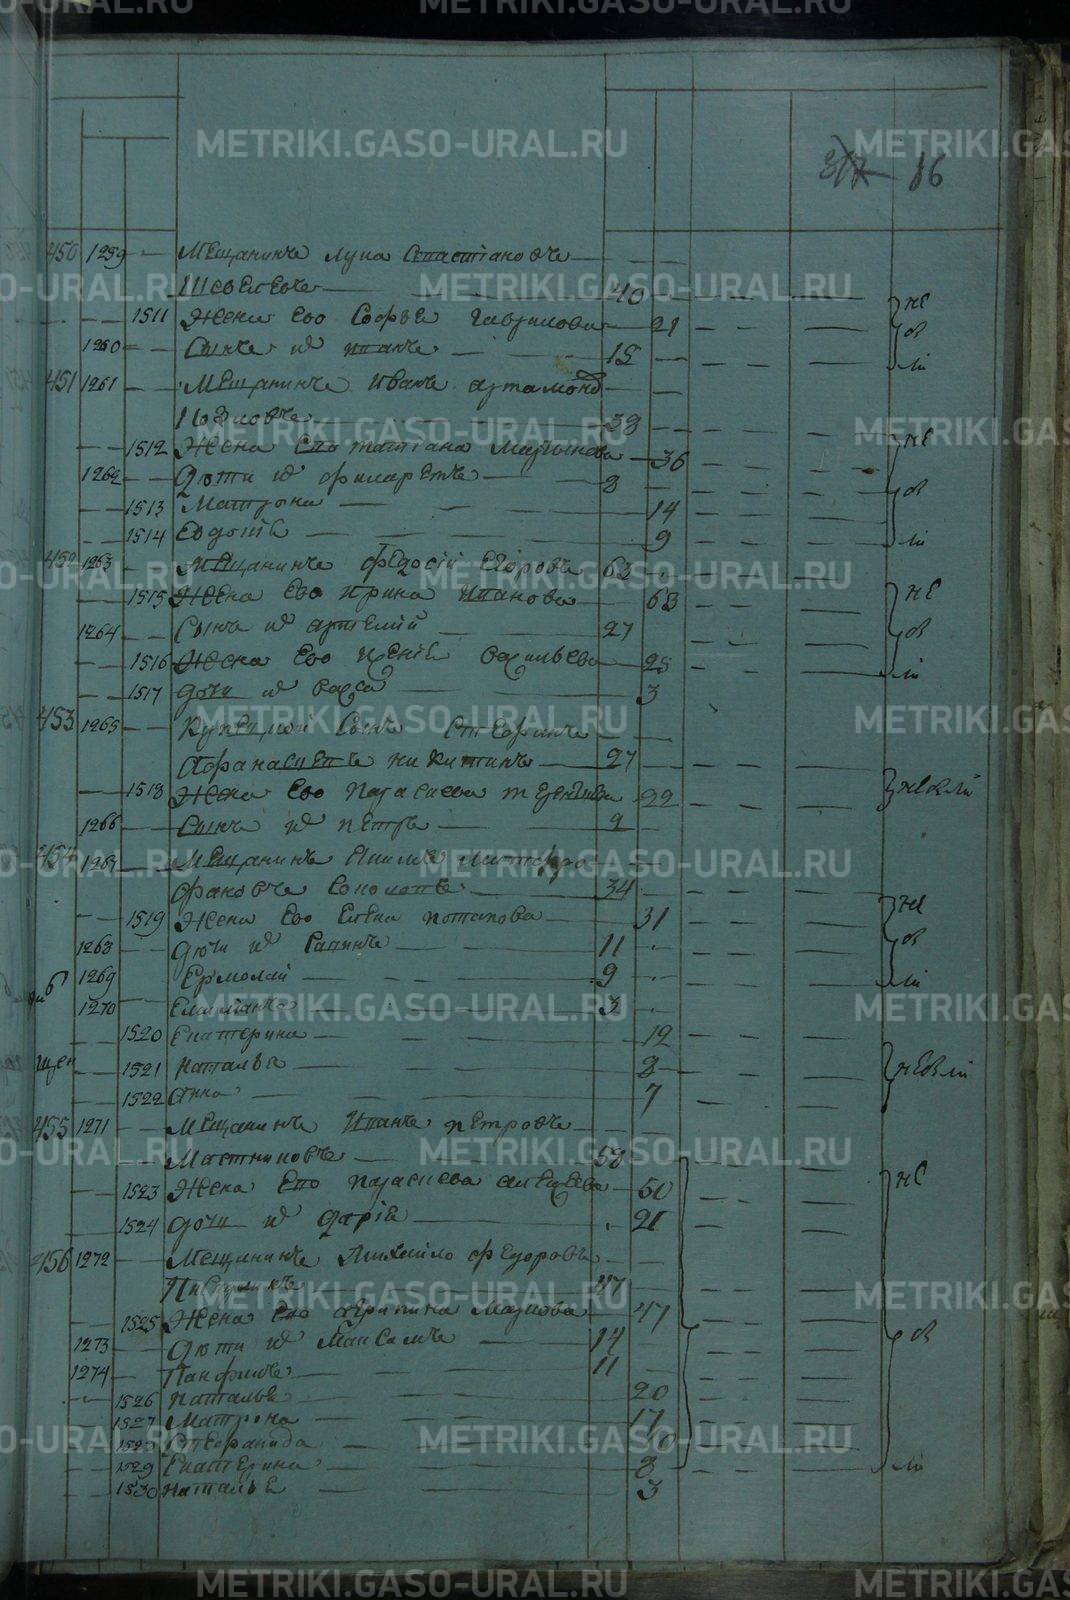 METRIKI.GASO-URAL.RU
317 86
450 1259 — Мещанинъ Лука Севастіановъ — — —
Шевелевъ — 40 — — — — не
1511 Жена Его Софья Гаврилова — 21 — — — в
1260 — Сынъ ихъ Иванъ — 15 — — — ли
451 1261 — Мещанинъ Иванъ Артамонов
38
1512 Жена Его Татіана Мартынова — 36 не
1262 — Дети ихъ Филаретъ — 8 — — — в
1513 Матрона — 14
1514 Евдокія — 9 ли
452 1263 — Мещанинъ Федосій Егоровъ 63
1515 Жена Его Ирина Иванова — 63 не
1264 Сынъ ихъ Артемій 27 в
1516 Жена Его Ксенія Васильева 25 ли
1517 дочь ихъ Васса — 3
453 1265 — Купецкой Сынъ Стефанъ
Афанасьевъ Никитинъ — 27
1518 Жена Его Параскева Терентьева 22 невли
1266 — Сынъ ихъ Петръ — 2
454 1267 — Мещанинъ Митро
фановъ Соколовъ — 34
1519 Жена Его Елена Потапова — 31 не
1268 дети ихъ Савинъ — 11 в
1269 Ермолай — 9 ли
1270 — 3
1520 Екатерина — 12
1521 Наталья — 8 невли
1522 Анна — 7
455 1271 — Мещанинъ Иванъ Петровъ
58
1523 Жена Его Параскева Алексеева — 50 не
1524 дочь ихъ Дарія — 21
456 1272 — Мещанинъ Михайло Федоровъ
47
1525 Жена Его Агрипина Маркова 47 в
1273 — Дети ихъ Максимъ — 14
1274 — Панфилъ — 11
1526 Наталья — 20
1527 Матрона — 17
1528 Стефанида — 10
1529 Екатерина — 8 ли
1530 Наталья — 3